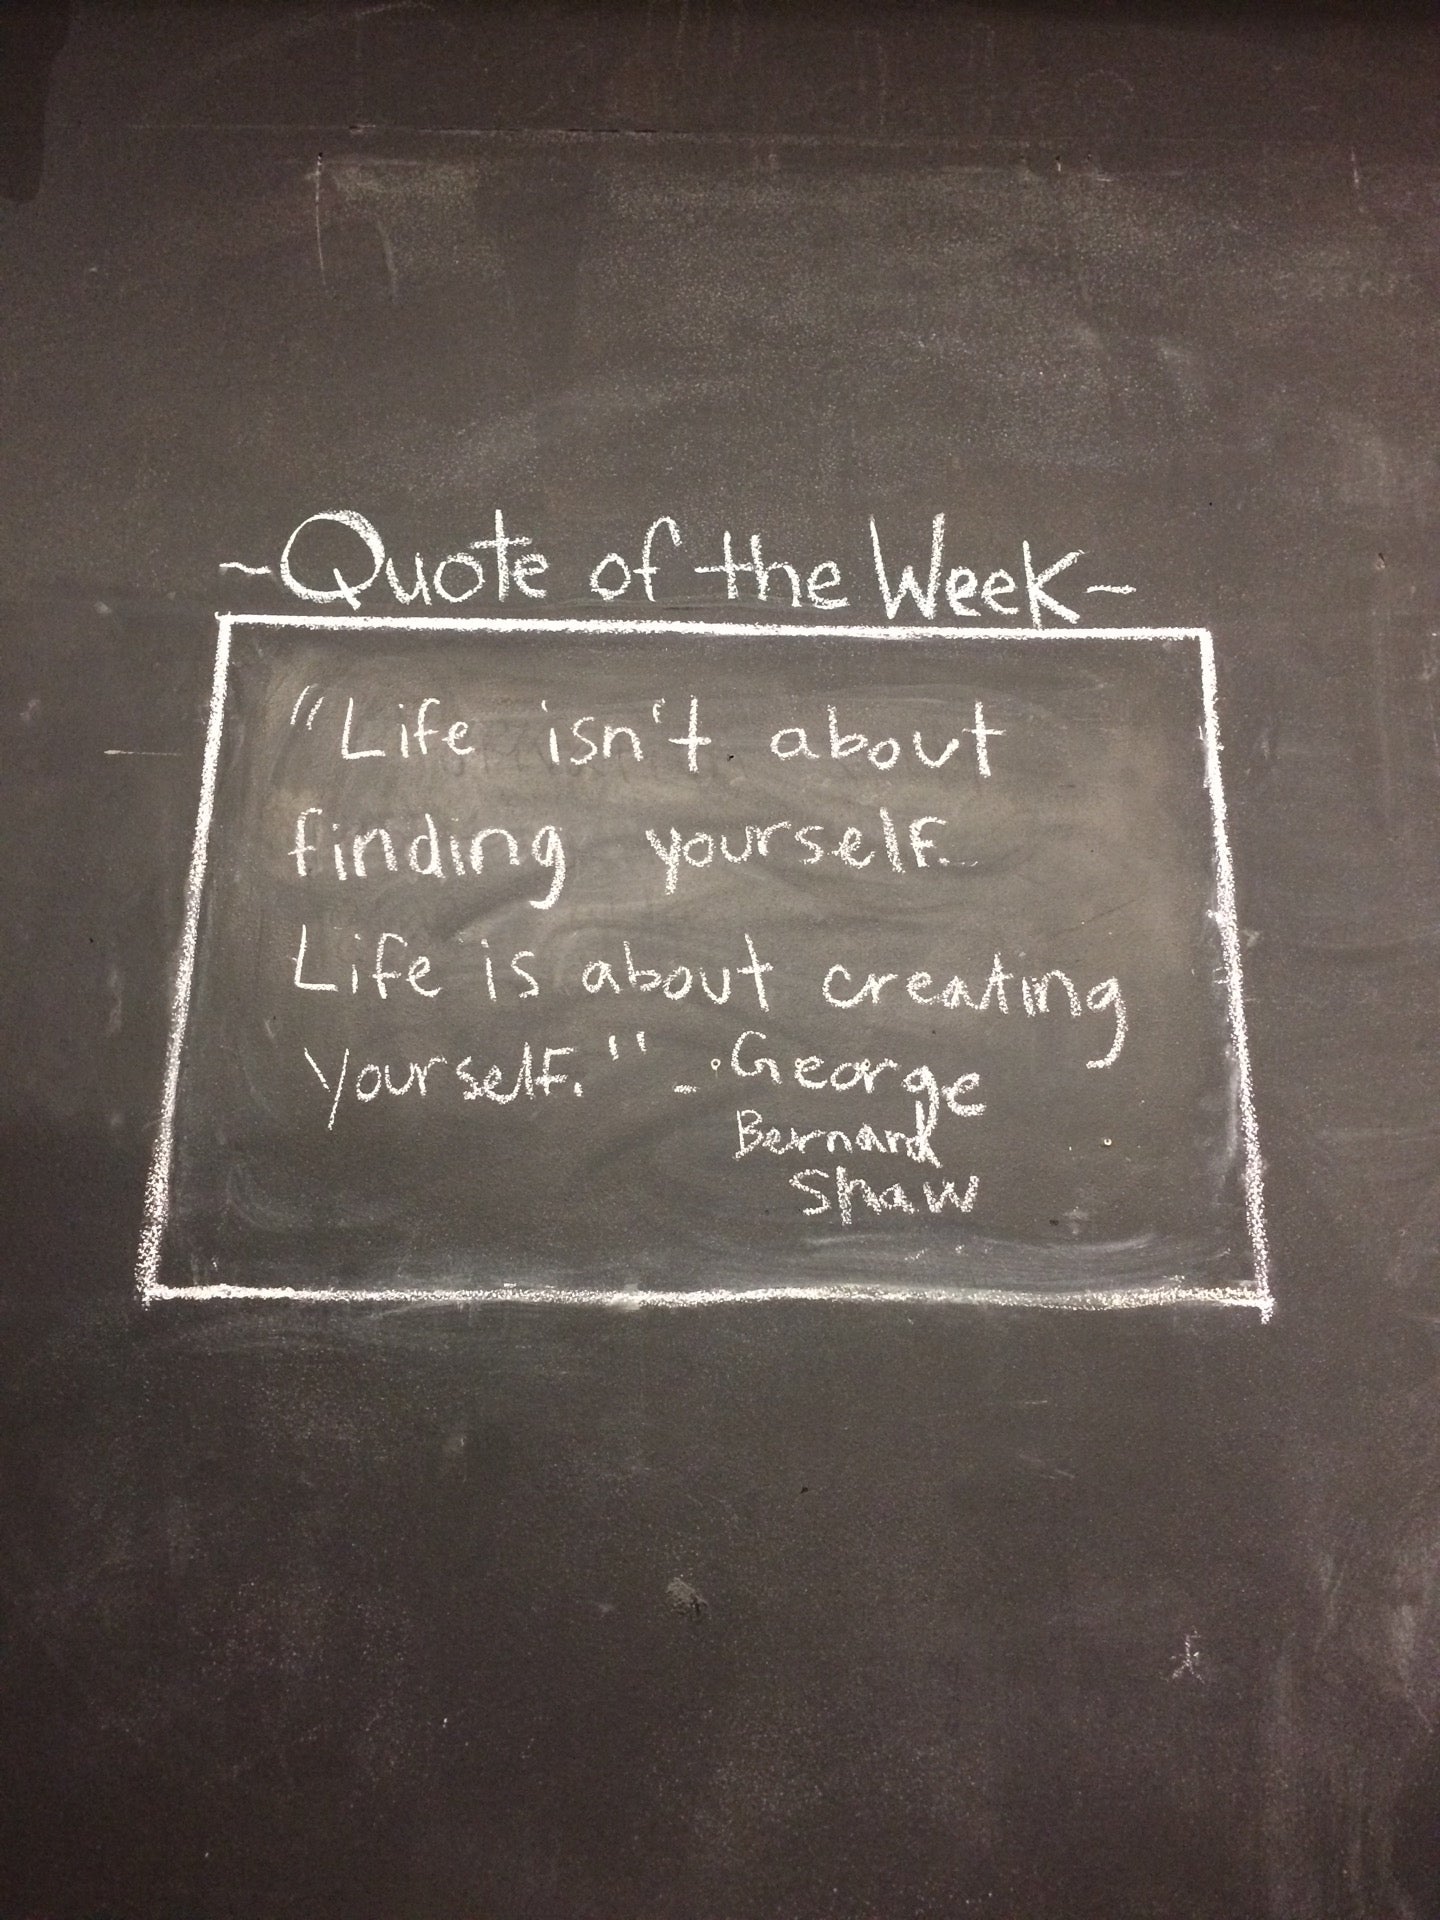 ~Quote of the Week~
"Life isn't about
finding yourself.
Life is about creating
yourself." - George
Bernard
Shaw